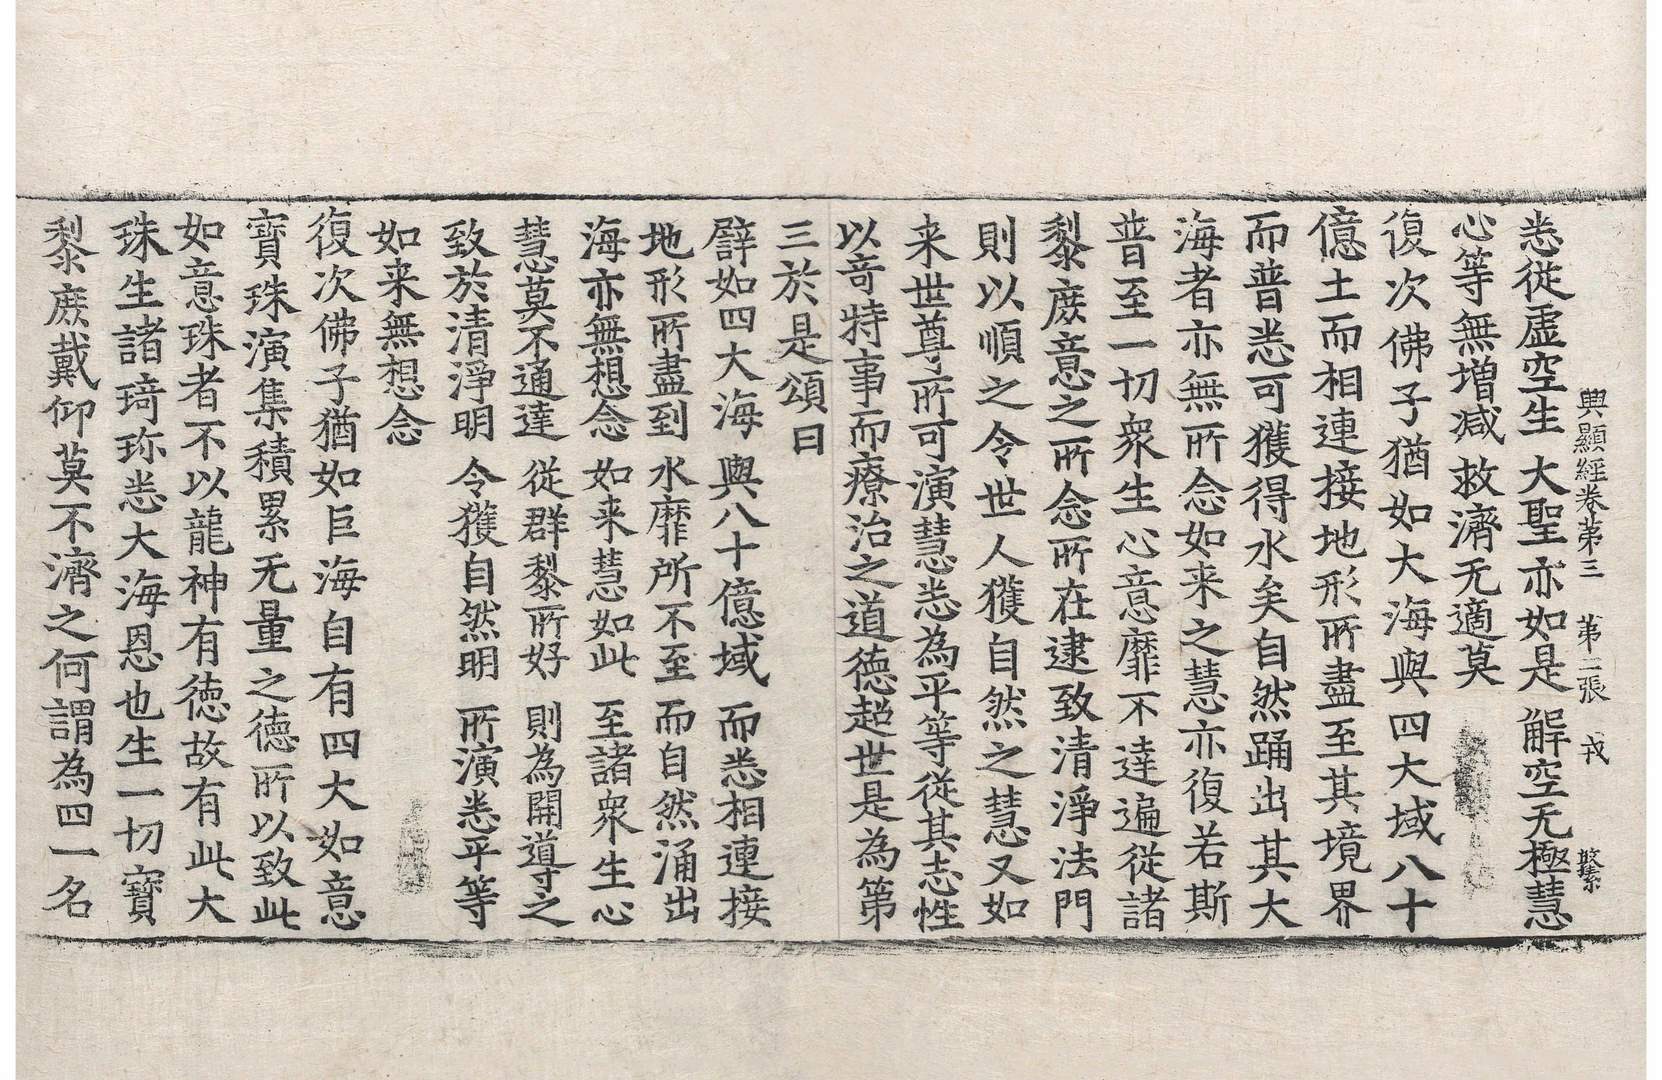 興顯經卷第三　第二張　戎
悉從虛空生　大聖亦如是　解空无極慧
心等無增减　救濟无適莫
復次佛子猶如大海與四大域八十
億土而相連接地形所盡至其境界
而普悉可獲得水矣自然踊出其大
海者亦無所念如来之慧亦復若斯
普至一切衆生心意靡不達遍從諸
黎庶意之所念所在逮致清淨法門
則以順之令世人獲自然之慧又如
来世尊所可演慧悉為平等從其志性
以竒特事而療治之道德超世是為第
三於是頌曰
譬如四大海　與八十億域　而悉相連接
地形所盡到　水靡所不至　而自然涌出
海亦無想念　如来慧如此　至諸衆生心
慧莫不通達　從群黎所好　則為開導之
致於清淨明　令獲自然明　所演悉平等
如来無想念
復次佛子猶如巨海自有四大如意
寶珠演集積累无量之德所以致此
如意珠者不以龍神有德故有此大
珠生諸琦珍悉大海恩也生一切寶
黎庶戴仰莫不濟之何謂為四一名